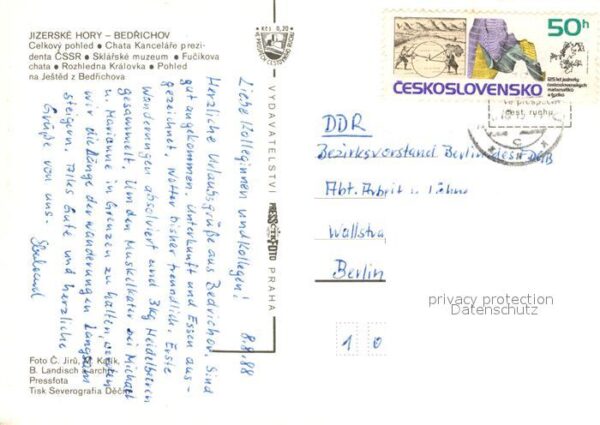 JIZERSKÉ HORY – BEDŘICHOV
Celkový pohled • Chata Kanceláře prezi-
denta ČSSR • Sklářské muzeum • Fučíkova
chata • Rozhledna Královka • Pohled
na Ještěd z Bedřichova
Kčs 0,20
8.8.88
Liebe Kolleginnen und Kollegen!
Herzliche Urlaubsgrüße aus Bedrichov. Sind
gut angekommen. Unterkunft und Essen aus-
gezeichnet, Wetter bisher freundlich. Erste
Wanderungen absolviert und 3kg Heidelbeeren
gesammelt. Um den Muskelkater bei Michael
u. Marianne in Grenzen zu halten, werden
wir die Länge der Wanderungen langsam
steigern. Alles Gute und herzliche
Grüße von uns.
Foto Č. Jirů, M. Kalík,
B. Landisch a archiv
Pressfota
Tisk Severografia Děčín
VYDAVATELSTVÍ PRESSFOTO PRAHA
50h
ČESKOSLOVENSKO
125 let jednoty
československých
matematiků
a fyziků
DDR
Bezirksvorstand Berlin des FDGB
Abt. Arbeit u. Löhne
Wallstra
Berlin
privacy protection
Datenschutz
1 0